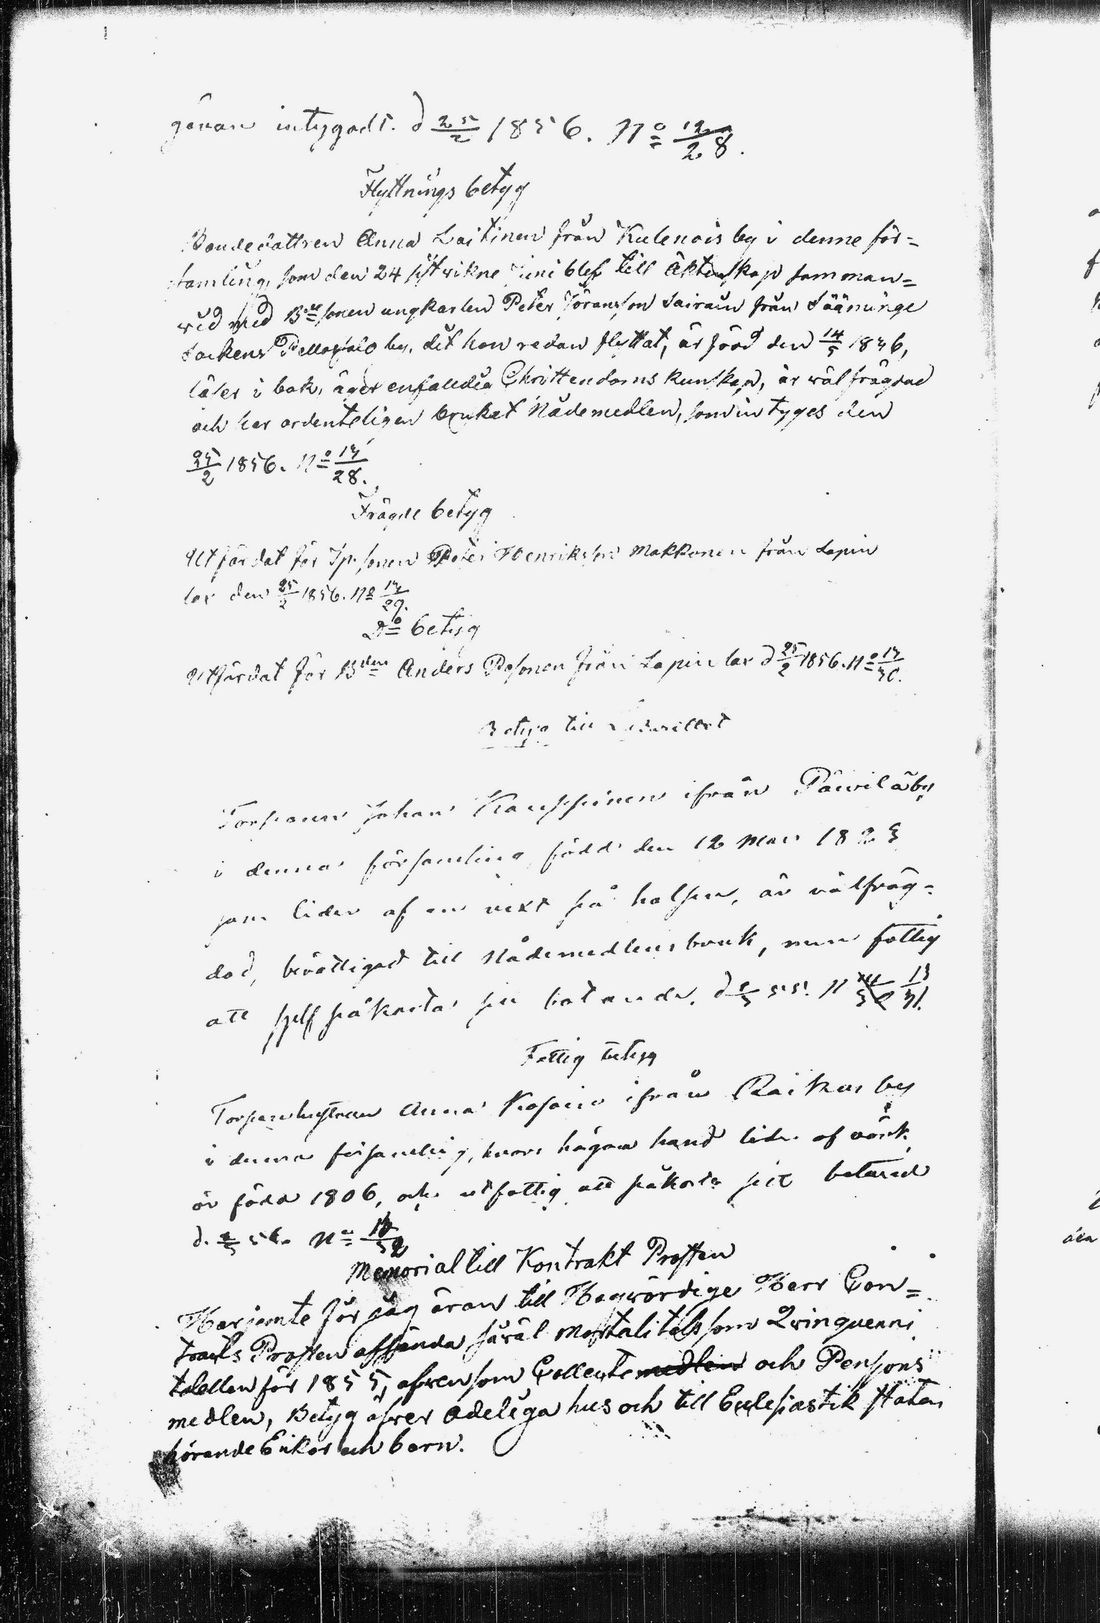 intygadt. d 25/2 1856. No 12/28.
Flyttnings betyg
Bondedottren Anna Laitinen från Kulenois by i denne för=
samling, som den 24 sistvikne Juni blef till Äktenskap samman=
wid med Bdesonen ungkarlen Peter Göransson Sairain från Sääminge
Sockens by, dit hon redan flyttat, är född den 14/5 1836,
läser i bok, äger enfaldia Christendoms kunskap, är wälfrägdad
och har ordenteligen brukat Nådemedlen, som intyges den
25/2 1856. No 13/28.
Frägde betyg
Utfärdat för Sp.sonen Petter Henriksson Makkonen från Lapin
lax den 25/2 1856. No 13/29.
Do betyg
Utfärdat för Bden Anders Posonen från Lapin lax d 25/2 1856. No 13/30.
Betyg till
Torparen Johan Kauppinen ifrån Päiviläby
i denna församling född den 12 Mars 182
som lider af en vext på halsen, är välfräg=
dad, berättigad till Nådemedlens bruk, men fattig
att sjelf påkosta sin botande. d 2/3 55. N 13/31.
Fattig betyg
Torparehustrun Anna Kosoin ifrån Raikus by
i denna församling, hvars högra hand lider af värk
är född 1806, och utfattig att påkosta sitt
d. 2/3 56. No 13/32
Memorial till Kontrakt Prosten
Harjemte för jag äran till Högwördige Herr Con=
tracts Prosten afsända såväl Mortalitets som Quinquenni
tabellen för 1855, afven som Collecte medlen och Pensons
medlen, Betyg öfver Adeliga hus och till Eclesiastik staten
hörande Enkor och barn.